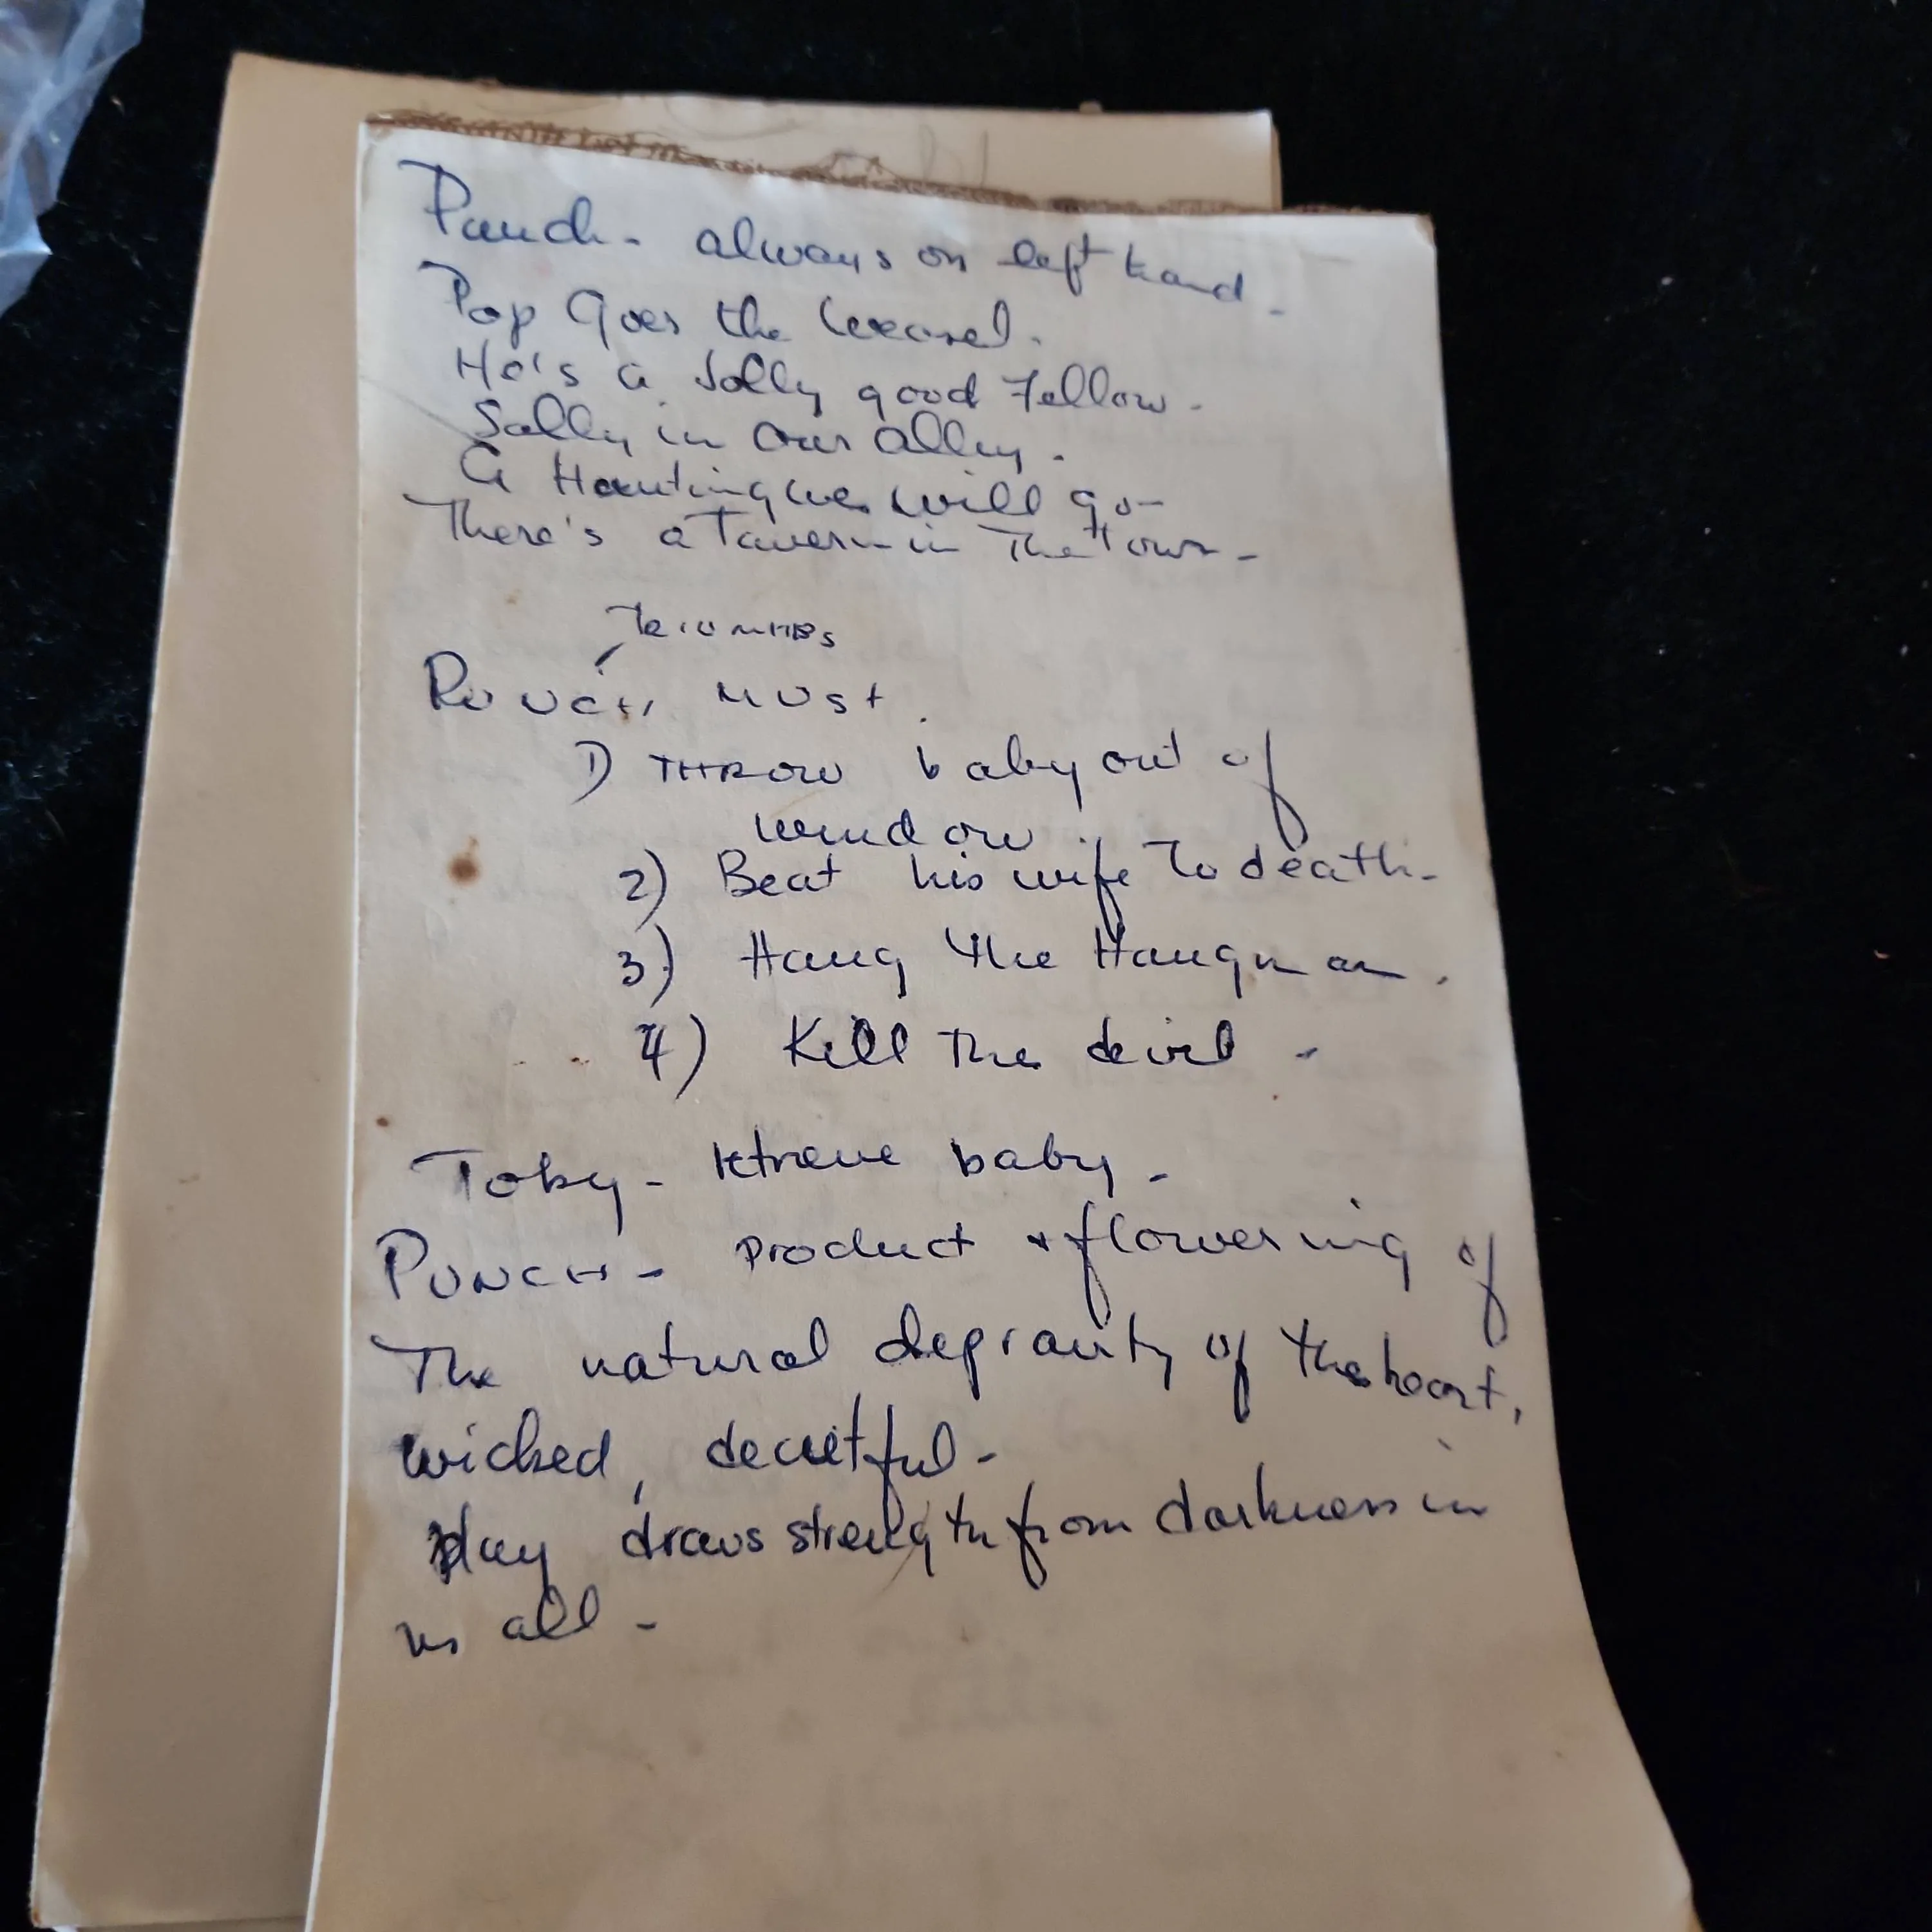 Punch - always on left hand -
Pop Goes the Weasel.
He's a Jolly good Fellow -
Sally in our alley.
A Hunting we will go -
There's a Tavern in The Town -
TRIUMPHS
PUNCH MUST.
1) THROW baby out of
window.
2) Beat his wife To death -
3) Hang the Hangman.
4) Kill The devil -
Toby - retrieve baby -
PUNCH - product + flowering of
The natural depravity of the heart,
wicked, deceitful -
play draws strength from darkness in
us all -